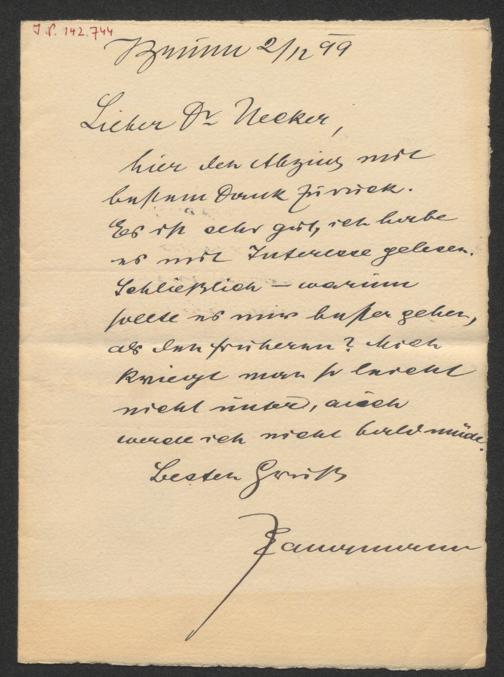 J.N. 142.744
Brünn 2/12 99
Lieber Dr. Necker,
hier den Abzug mit
bestem Dank zurück.
Es ist sehr gut, ich habe
es mit Interesse gelesen.
Schließlich – warum
sollte es mir besser gehen,
als den früheren? Mich
kriegt man so leicht
nicht unter, auch
werde ich nicht bald müde.
Besten Gruß